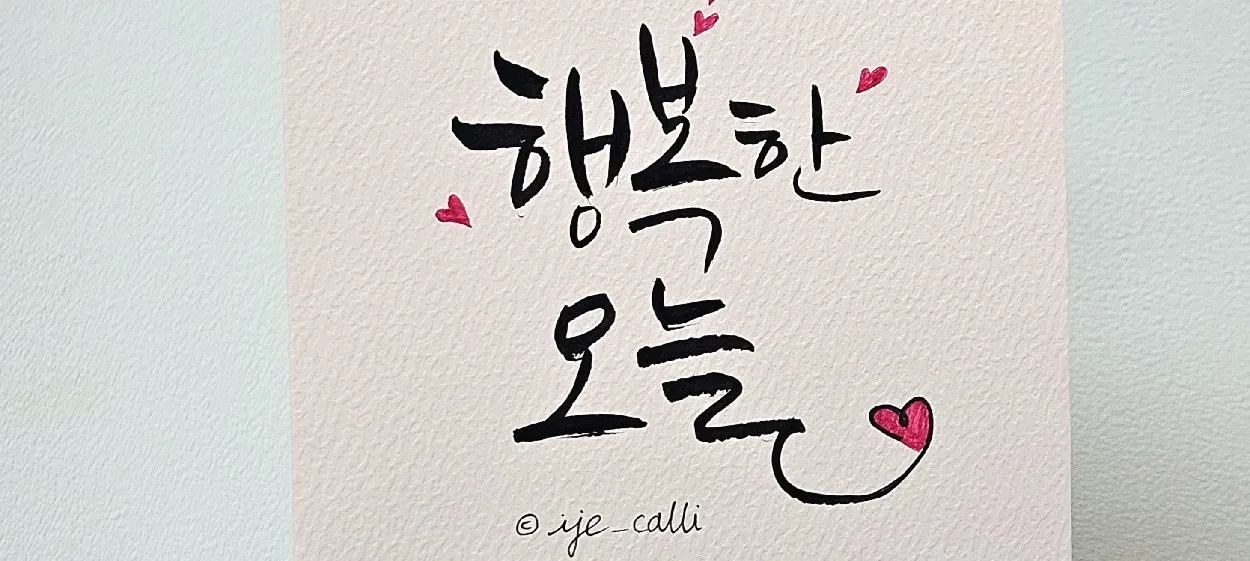 행복한
오늘
© ije_calli